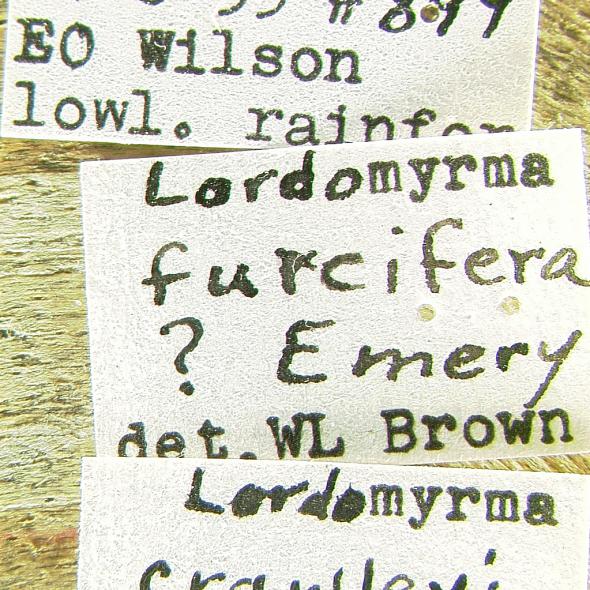 #899
EO Wilson
lowl. rainfor
Lordomyrma
furcifera
? Emery
det. WL Brown
Lordomyrma
crawleyi